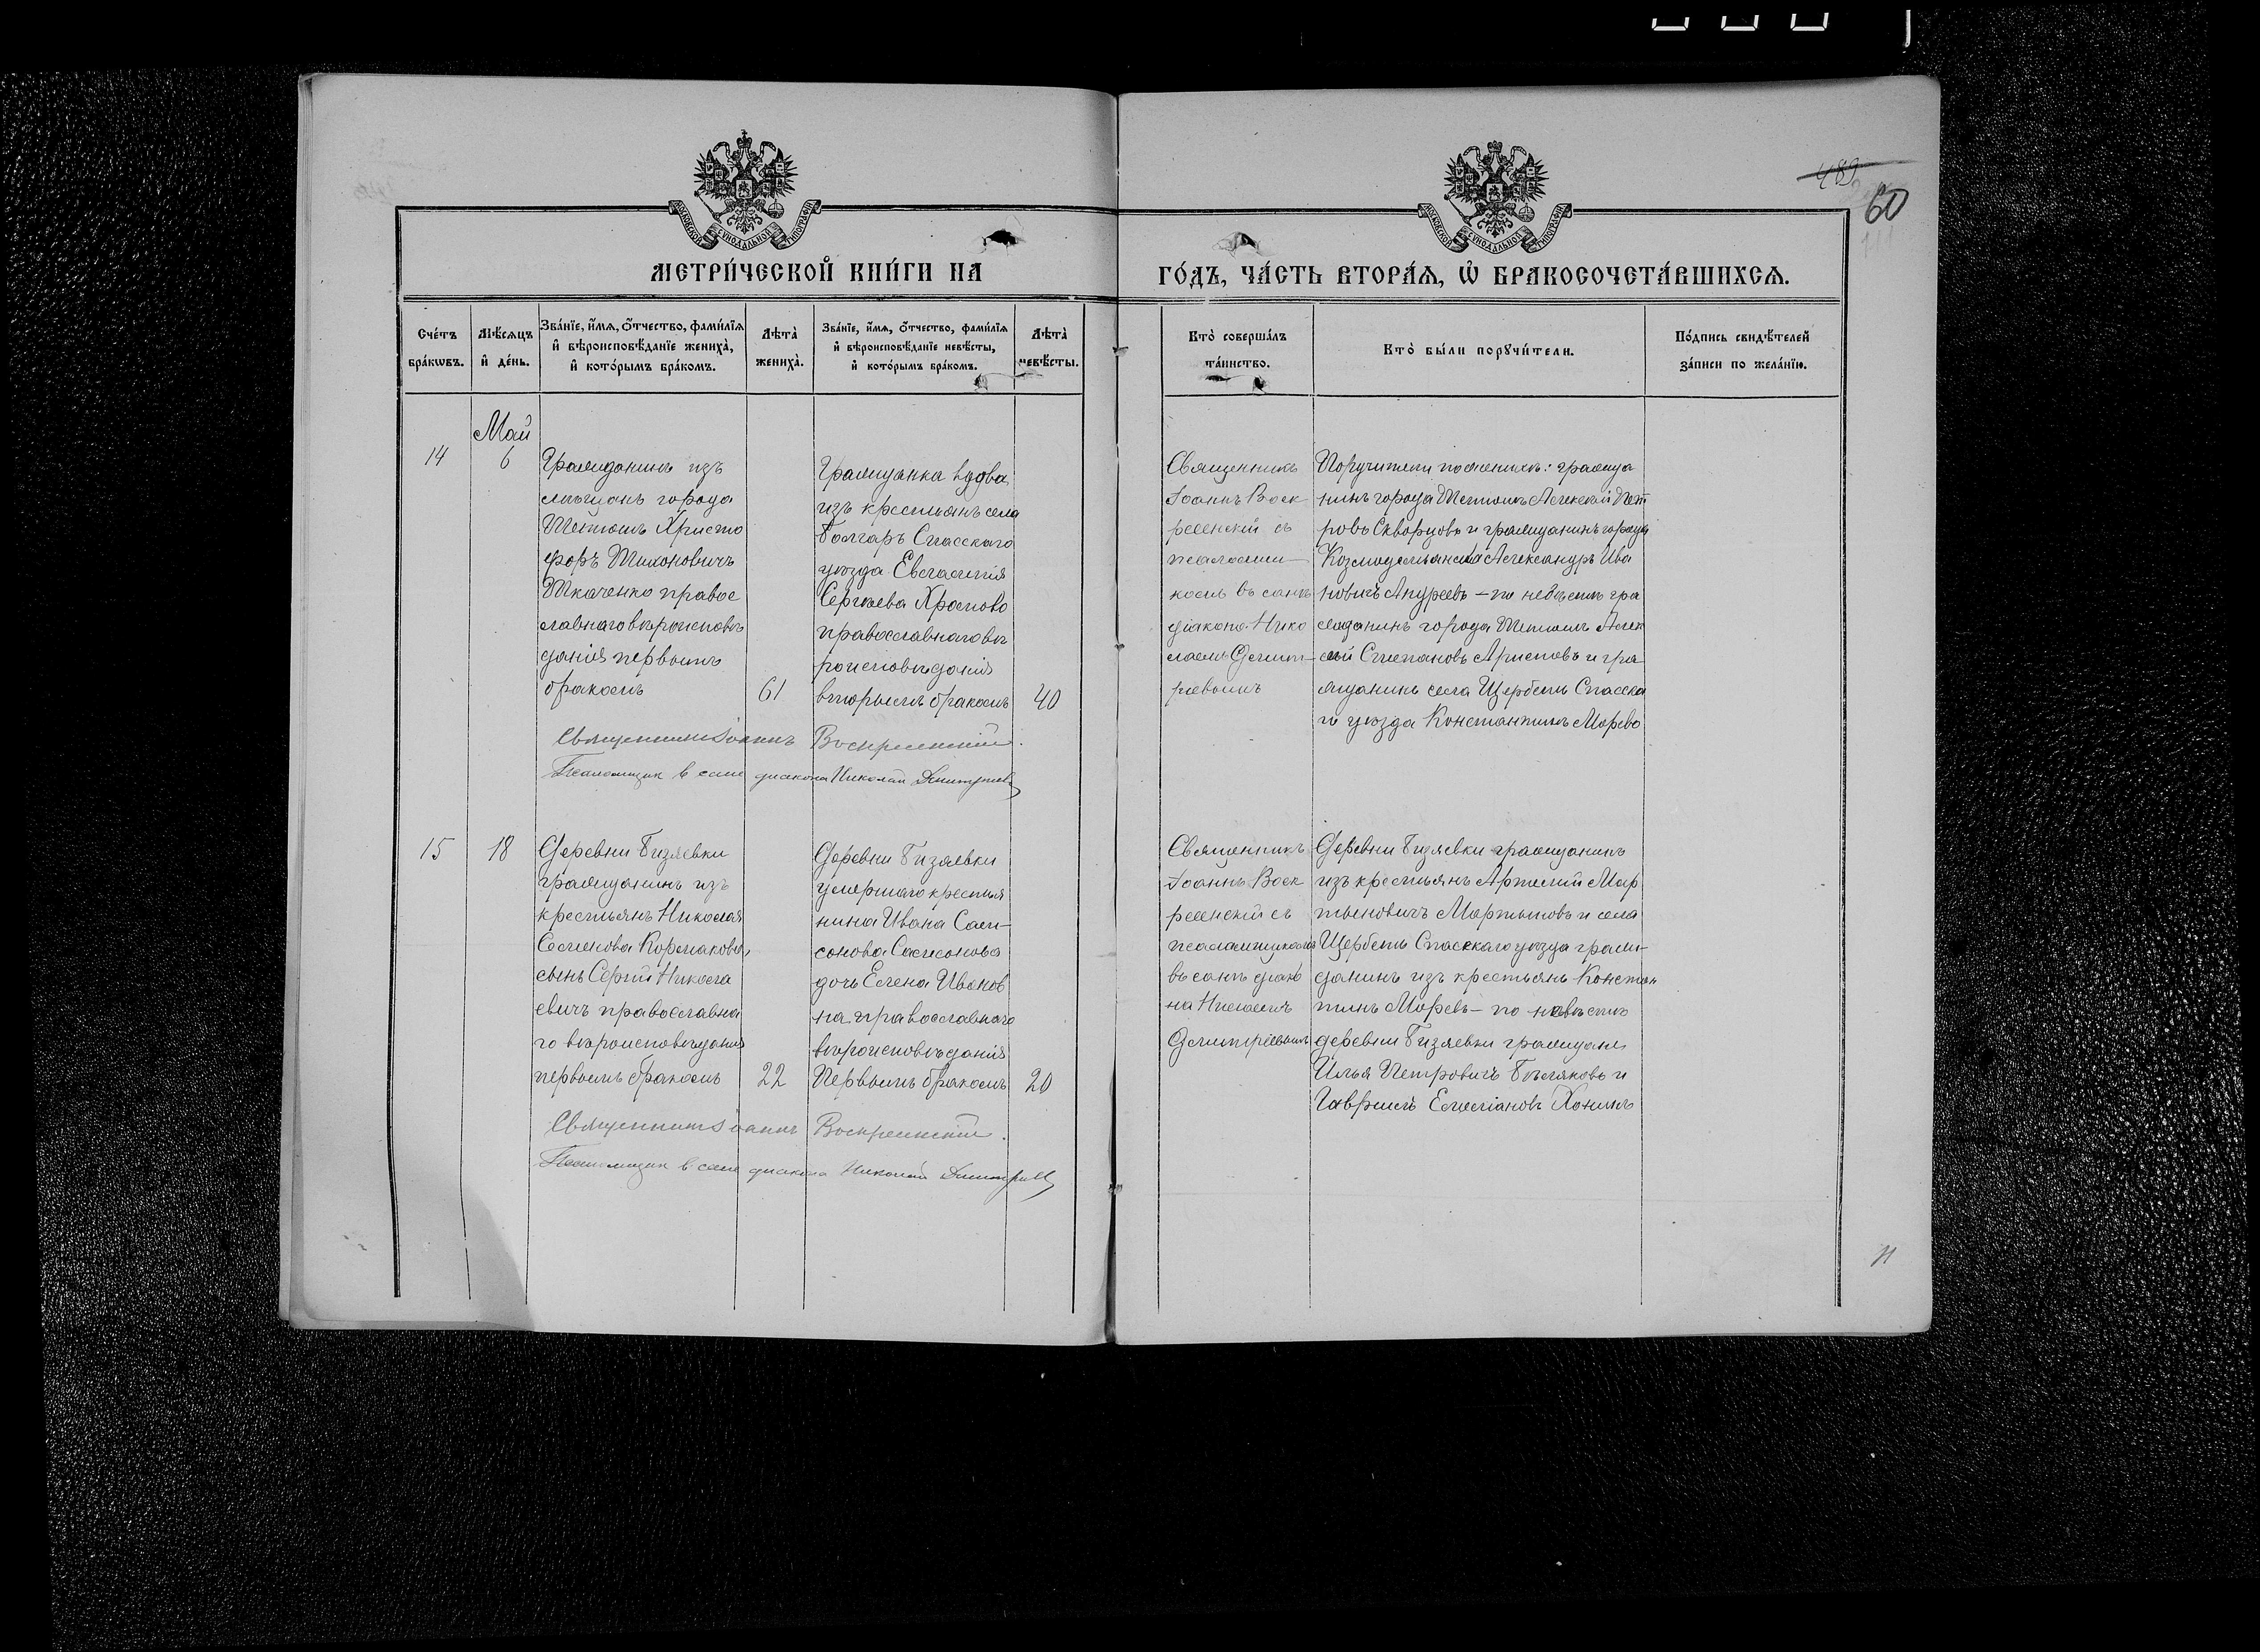 489
60
МЕТРИ́ЧЕСКОЙ КНИ́ГИ НА
ГО́ДЪ, ЧА́СТЬ ВТОРА́Я, Ѡ БРАКОСОЧЕТА́ВШИХСЯ.
Сче́тъ бра́кѡвъ.
Мѣ́сяцъ и де́нь.
Зва́нїе, и́мя, о́тчество, фами́лїя и вѣроисповѣ́данїе жениха̀, и кото́рымъ бра́комъ.
Лѣта̀ жениха̀.
Зва́нїе, и́мя, о́тчество, фами́лїя и вѣроисповѣ́данїе невѣ́сты, и кото́рымъ бра́комъ.
Лѣта̀ невѣ́сты.
Кто̀ соверша́лъ та́инство.
Кто̀ бы́ли порꙋчи́тели.
По́дпись свидѣ́телей за́писи по жела́нїю.
Май
14
6
Гражданинъ изъ
мѣщанъ города
Тетюшъ Христо
форъ Тихоновичъ
Ткаченко правос
лавнаго вѣроисповѣ
данія первымъ
бракомъ
61
Гражданка вдова
изъ крестьянъ села
Болгаръ Спасскаго
уѣзда Евлампія
Сергѣева Храмово
православнаго вѣ
роисповѣданія
вторымъ бракомъ
40
Священникъ
Іоаннъ Воск
ресенскій съ
псаломщи-
комъ въ санѣ
діакона Нико
лаемъ Димит-
ріевымъ
Поручители по женихѣ: гражда
нинъ города Тетюшъ Алексѣй Пет
ровъ Скворцовъ и гражданинъ города
Козмодемьянска Александръ Ива
новичъ Андреевъ - по невѣстѣ гра
жданинъ города Тетюшъ Алек
сѣй Степановъ Аристовъ и гра
жданинъ села Щербеть Спасска
го уѣзда Константинъ Марево
Священникъ Іоаннъ Воскресенскій.
Псаломщик в сане диакона Николай Димитриев
15
18
Деревни Бизяевки
гражданинъ изъ
крестьянъ Николая
Семенова Кормакова,
сынъ Сергій Никола
евичъ православна
го вѣроисповѣданія
первымъ бракомъ
22
Деревни Бизяевки
умершаго крестья
нина Ивана Сам-
сонова Самсонова
дочь Елена Иванов
на православнаго
вѣроисповѣданія
Первымъ бракомъ
20
Священникъ
Іоаннъ Воск
ресенскій съ
псаломщикомъ
въ санѣ діако
на Николаемъ
Димитріевымъ
Деревни Бизяевки гражданинъ
изъ крестьянъ Артемій Мар
тыновичъ Мартыновъ и села
Щербеть Спасскаго уѣзда граж-
данинъ изъ крестьянъ Констан
тинъ Маревъ - по невѣстѣ
деревни Бизяевки граждане
Илья Петровичъ Бѣляковъ и
Гавріилъ Емеліановъ Хонинъ
Священникъ Іоаннъ Воскресенскій.
Псаломщик в сане диакона Николай Димитриев